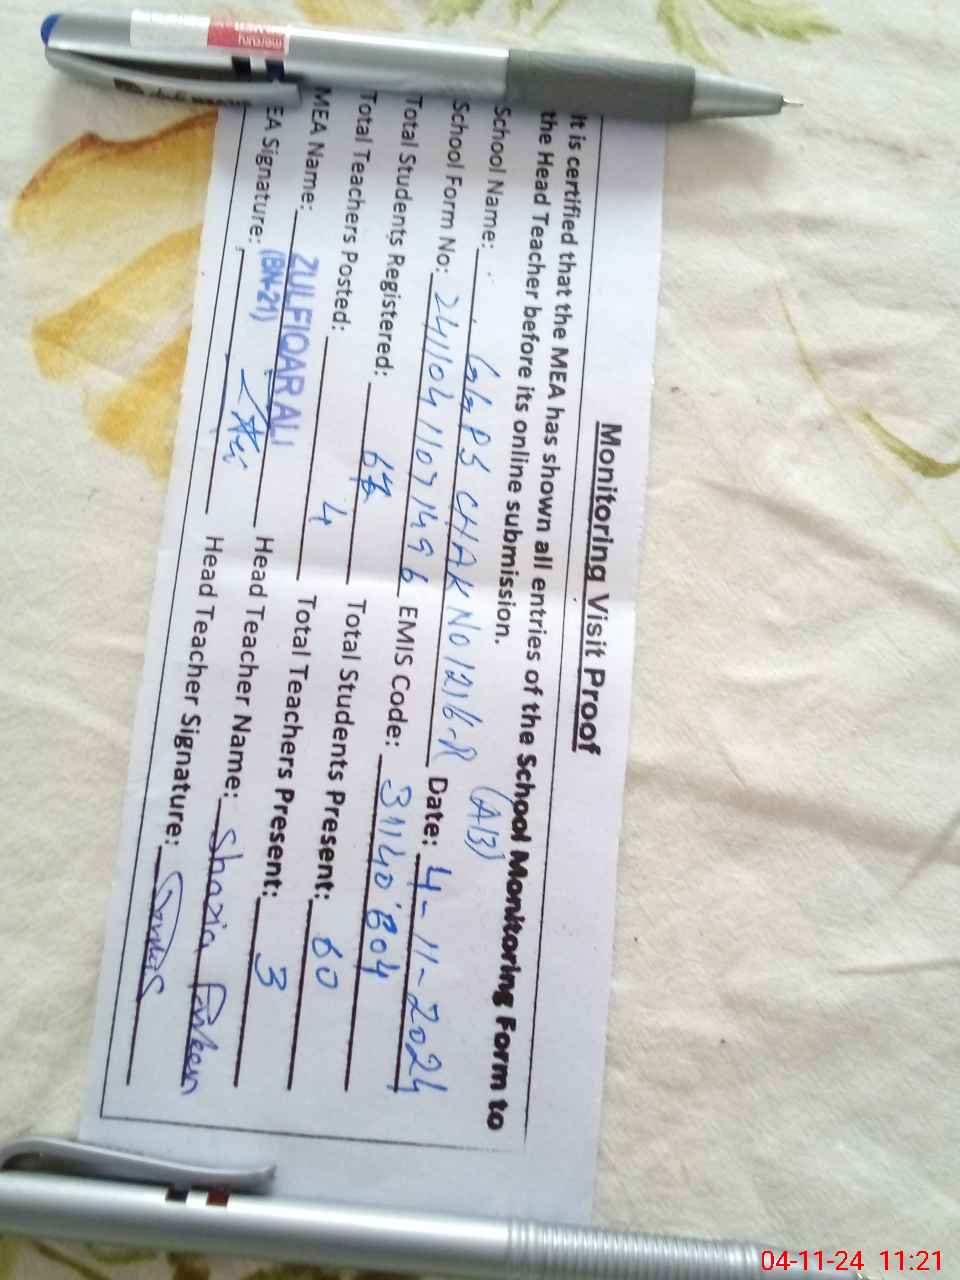 Monitoring Visit Proof
It is certified that the MEA has shown all entries of the School Monitoring Form to
the Head Teacher before its online submission.
School Name: GGPS CHAK NO 121 6-R (A13)
School Form No: 24110411071496 Date: 4-11-2024
Total Students Registered: EMIS Code: 31140804
Total Teachers Posted: 4 Total Students Present: 60
MEA Name: ZULFIQAR ALI (BN-21) Total Teachers Present: 3
EA Signature: Head Teacher Name: Shazia
Head Teacher Signature:
04-11-24 11:21